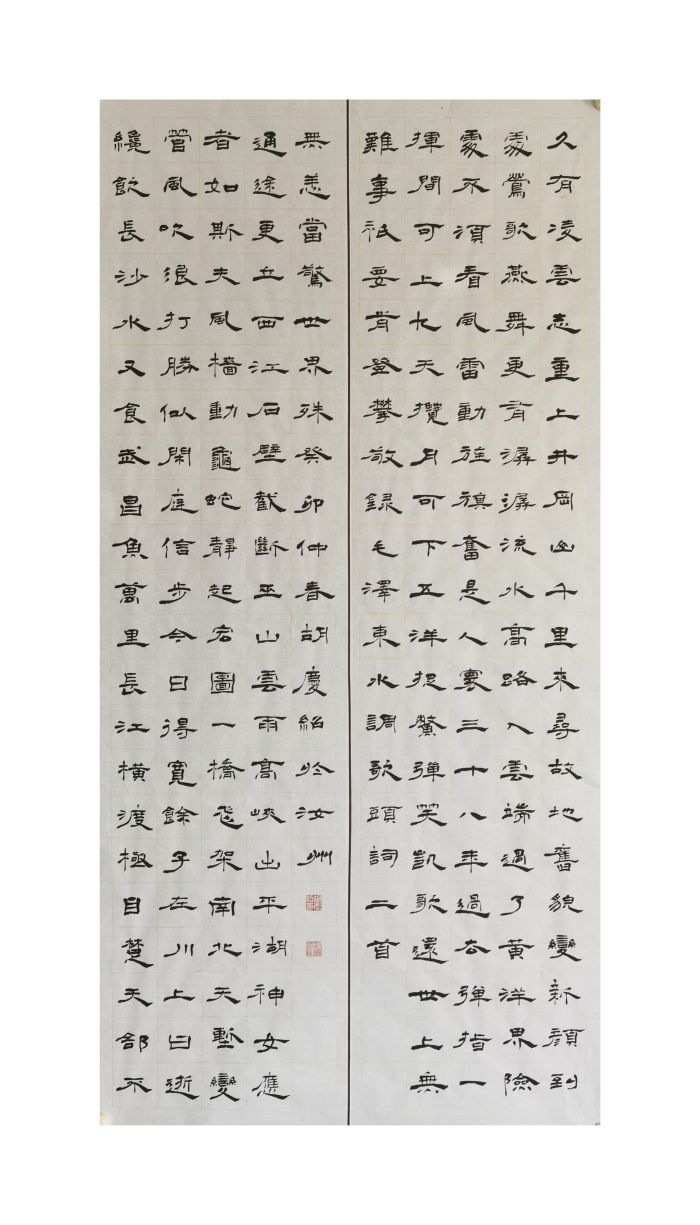 久有凌雲志重上井岡山千里來尋故地舊貌變新顏到
處鶯歌燕舞更有潺潺流水高路入雲端過了黃洋界險
處不須看風雷動旌旗奮是人寰三十八年過去彈指一
揮間可上九天攬月可下五洋捉鱉彈笑凱歌還世上無
難事衹要肯登攀敬錄毛澤東水調歌頭詞二首
纔飲長沙水又食武昌魚萬里長江橫渡極目楚天舒不
管風吹浪打勝似閑庭信步今日得寬餘子在川上曰逝
者如斯夫風檣動龜蛇靜起宏圖一橋飛架南北天塹變
通途更立西江石壁截斷巫山雲雨高峽出平湖神女應
無恙當驚世界殊癸卯仲春胡慶紹於汝州